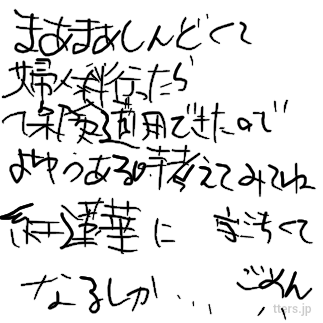 まあまあしんどくて
婦人科行ったら
保険適用できたので
よゆうある時考えてみてね
紅蓮華に 字きちくて
なるしか... ごめん
tters.jp